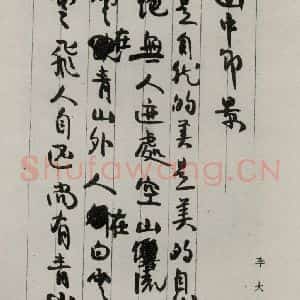 山中即景
是自然的美是美的自
絕無人迹處空山響流
雲在青山外人在白雲
雲飛人自还尚有青山
李大
Shufawang.CN